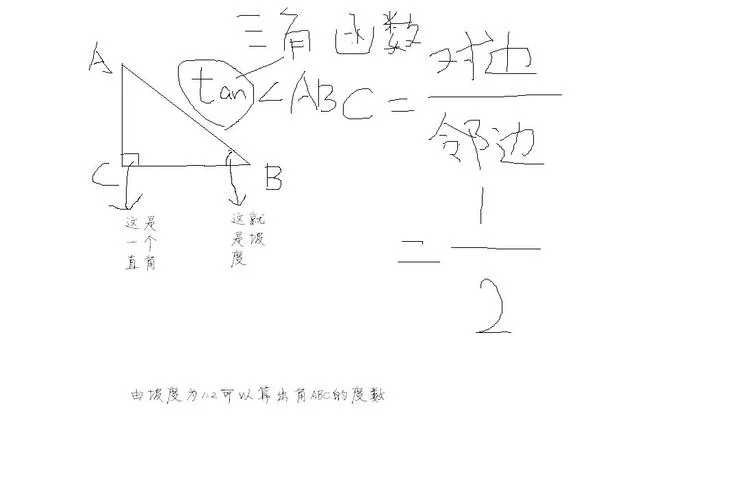 三角函数
A
tan<ABC=对边
邻边
=1
2
C
B
这是
一个
直角
这就
是坡
度
由坡度为1:2可以算出角ABC的度数